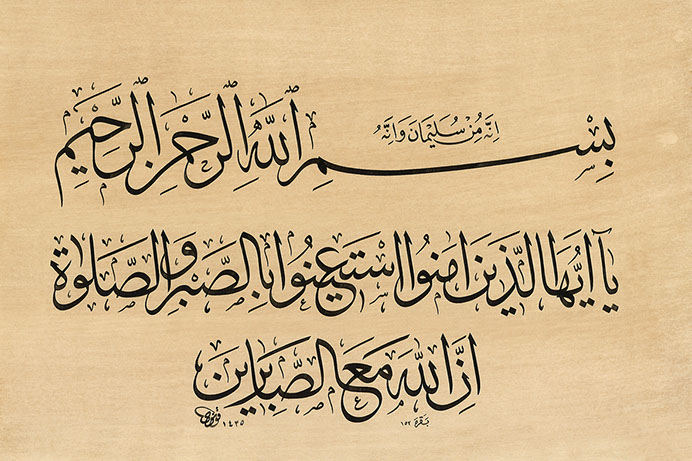 إنه من سليمان وإنه
بسم الله الرحمن الرحيم
يا أيها الذين آمنوا استعينوا بالصبر والصلاة
إن الله مع الصابرين
بقره ١٥٣
١٤٣٥